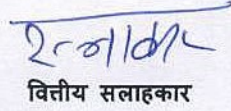 रत्नाकर
वित्तीय सलाहकार